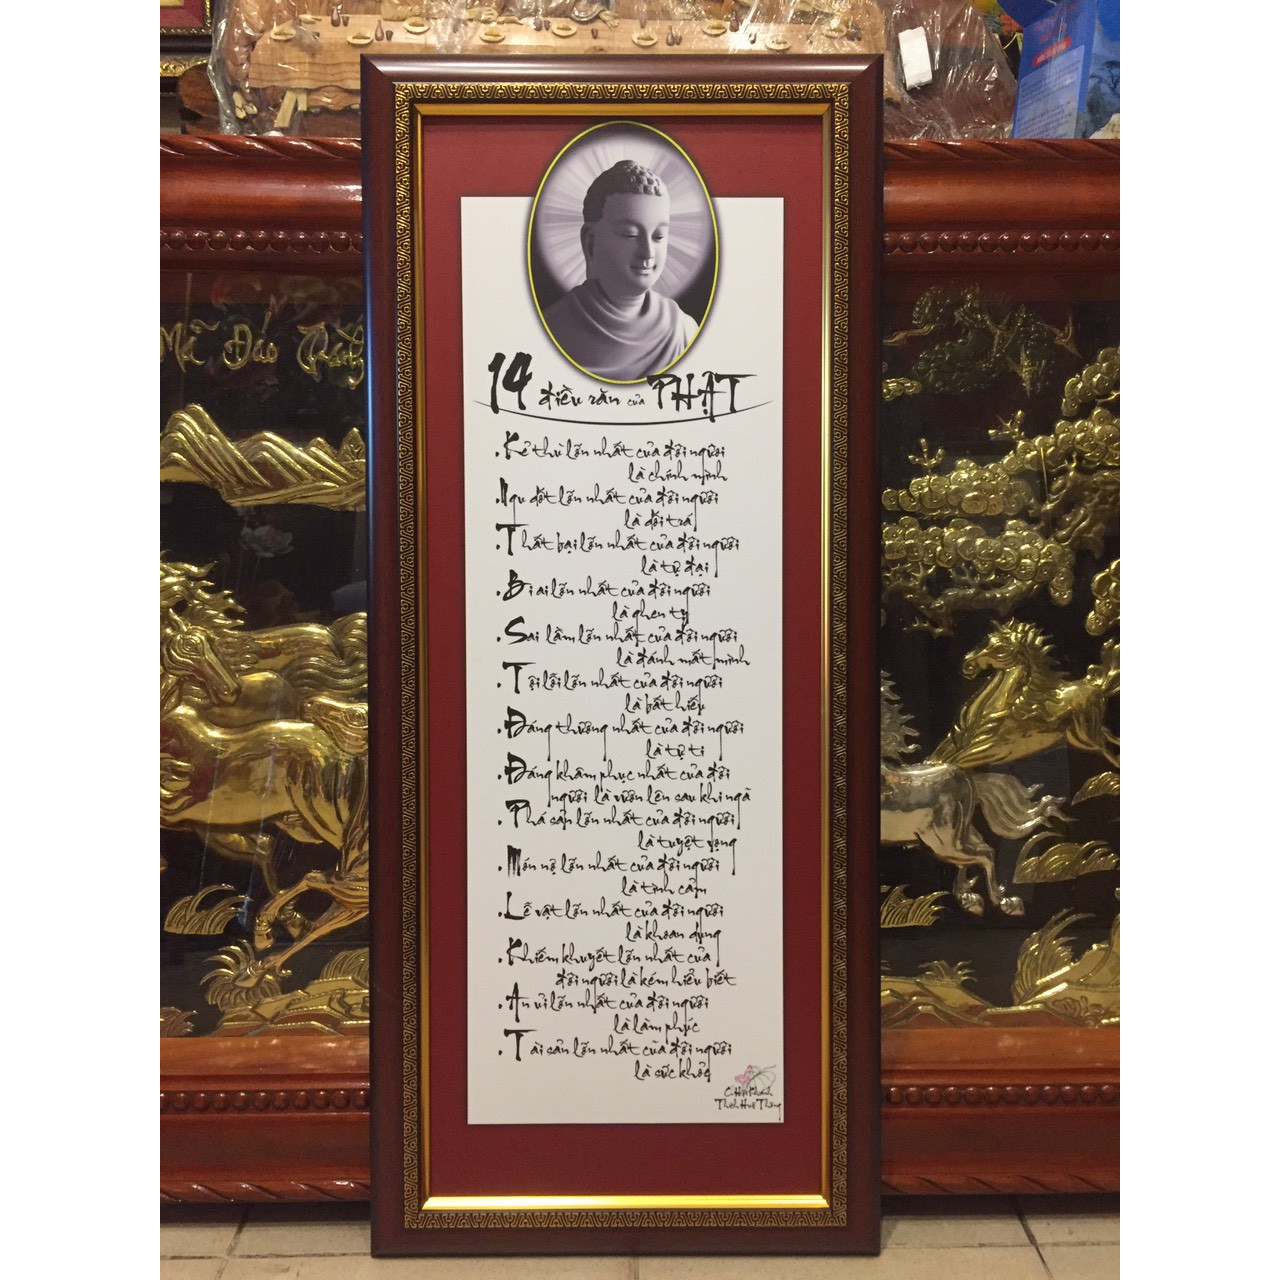 Mã Đáo Thành
14 điều răn của PHẬT
. Kẻ thù lớn nhất của đời người
là chính mình
. Ngu dốt lớn nhất của đời người
là dối trá
. Thất bại lớn nhất của đời người
là tự đại
. Bi ai lớn nhất của đời người
là ghen tỵ
. Sai lầm lớn nhất của đời người
là đánh mất mình
. Tội lỗi lớn nhất của đời người
là bất hiếu
. Đáng thương nhất của đời người
là tự ti
. Đáng khâm phục nhất của đời
người là vươn lên sau khi ngã
. Phá sản lớn nhất của đời người
là tuyệt vọng
. Món nợ lớn nhất của đời người
là tình cảm
. Lễ vật lớn nhất của đời người
là khoan dung
. Khiếm khuyết lớn nhất của
đời người là kém hiểu biết
. An ủi lớn nhất của đời người
là làm phúc
. Tài sản lớn nhất của đời người
là sức khỏe